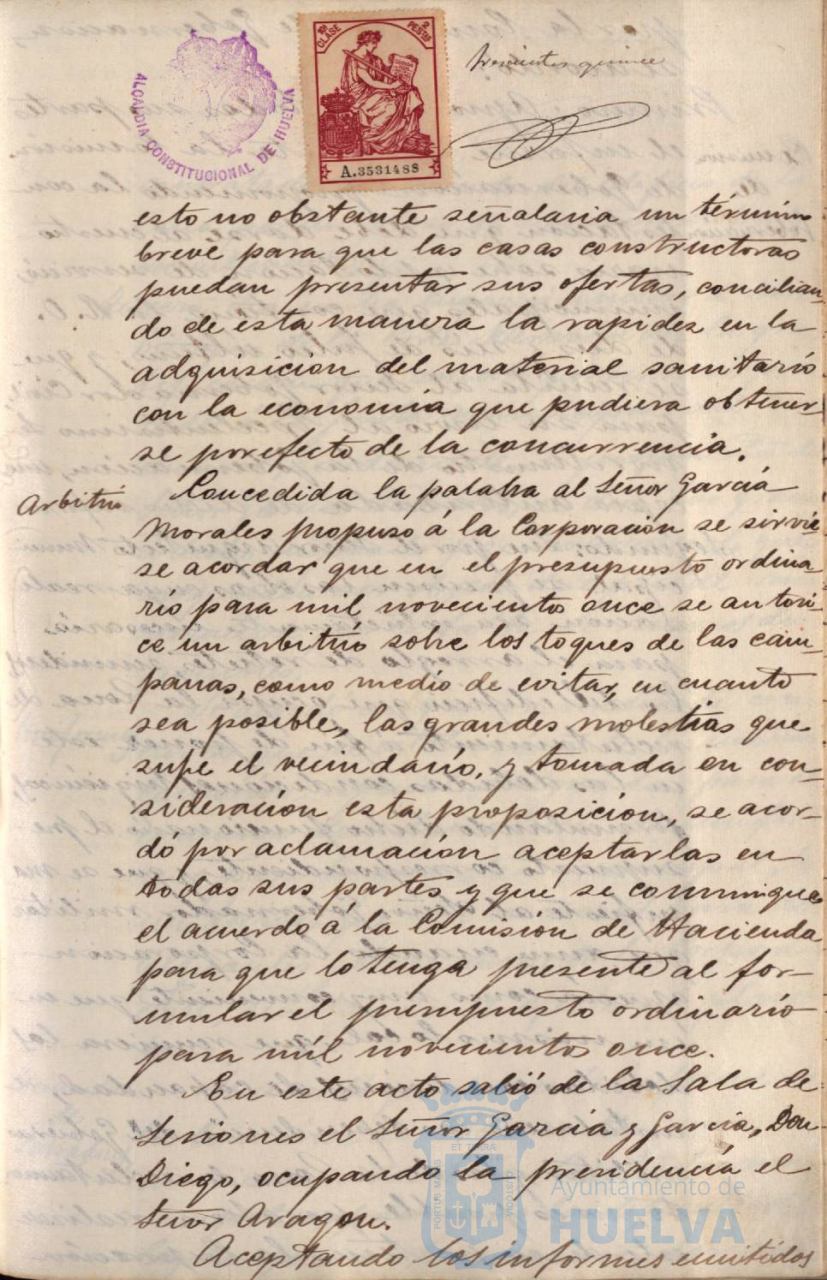 ALCALDIA CONSTITUCIONAL DE HUELVA
10ª CLASE 2 PESETAS
A.3531488
trescientos quince
esto no obstante señalaria un término
breve para que las casas constructoras
puedan presentar sus ofertas, concilian-
do de esta manera la rapidez en la
adquisicion del material sanitario
con la economia que pudiera obtener-
se por efecto de la concurrencia.
Arbitrio
Concedida la palabra al Señor García
Morales propuso á la Corporación se sirvie-
se acordar que en el presupuesto ordina-
rio para mil novecientos once se autori-
ce un arbitrio sobre los toques de las cam-
panas, como medio de evitar, en cuanto
sea posible, las grandes molestias que
sufre el vecindario, y tomada en con-
sideración esta proposición, se acor-
dó por aclamación aceptarlas en
todas sus partes y que se comunique
el acuerdo á la Comisión de Hacienda
para que lo tenga presente al for-
mular el presupuesto ordinario
para mil novecientos once.
En este acto salió de la Sala de
Sesiones el Señor García y García, Don
Diego, ocupando la presidencia el
Señor Aragon.
Aceptando los informes emitidos
Ayuntamiento de
HUELVA